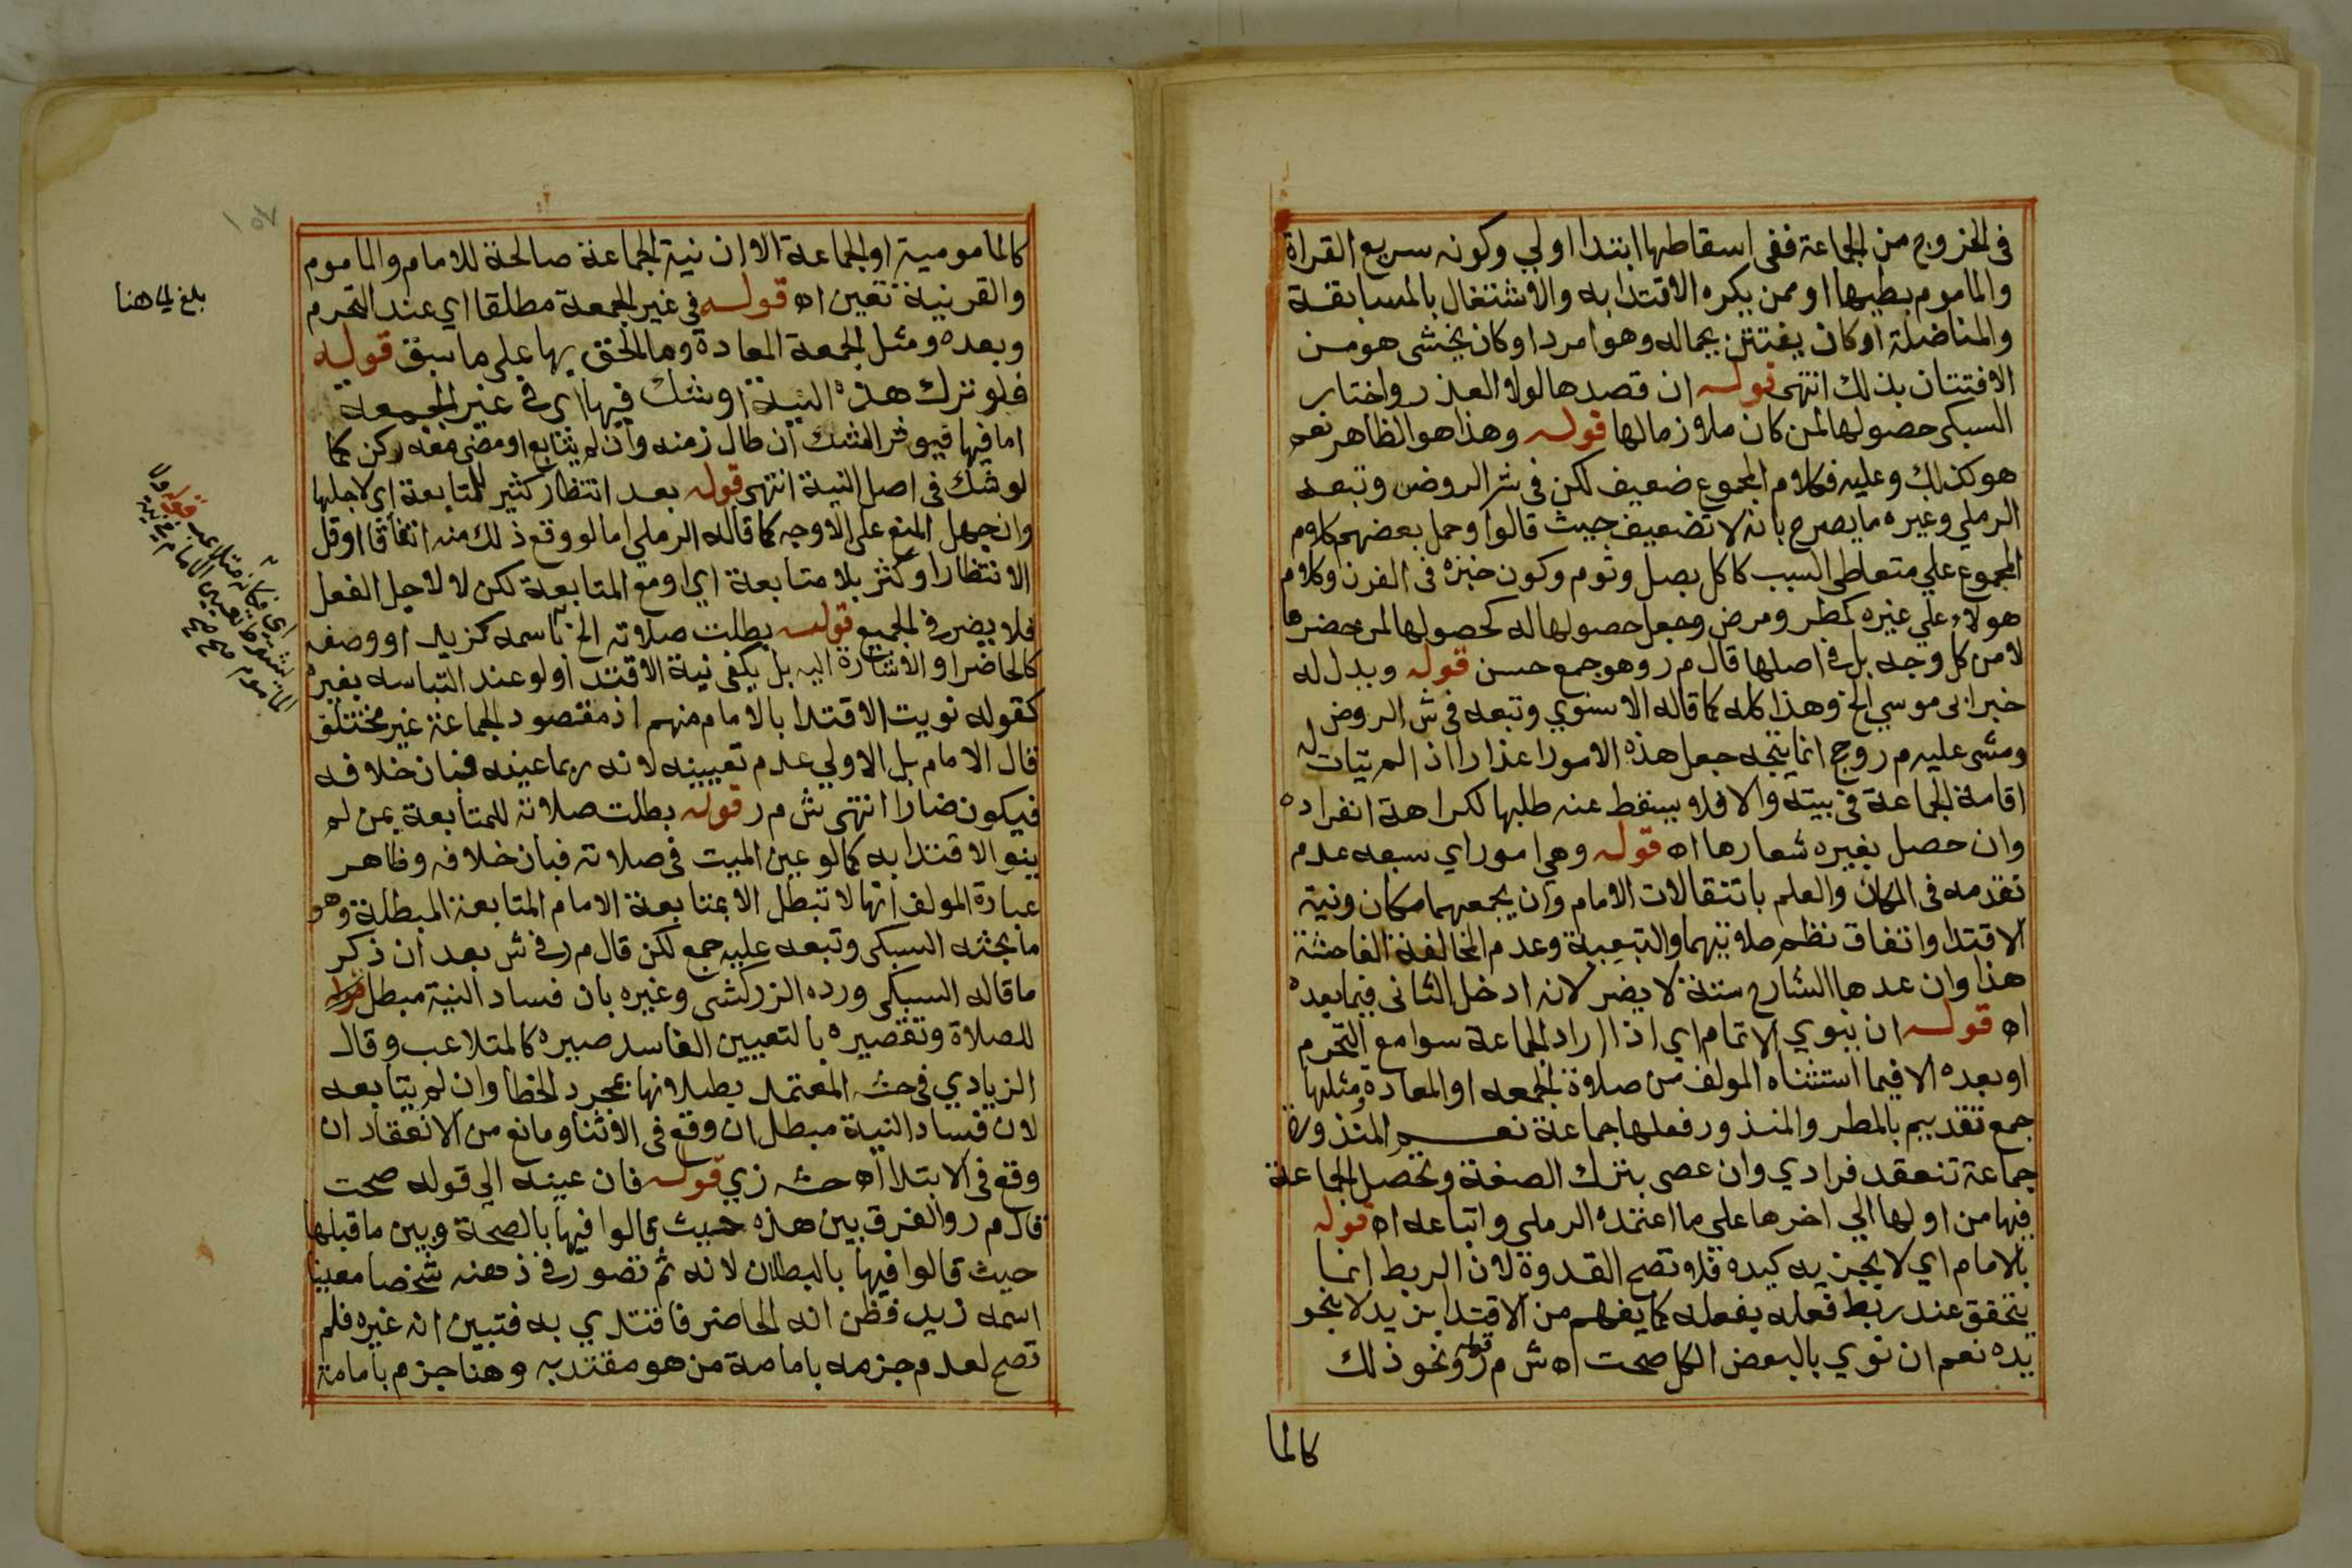 في الخروج من الجماعة ففي اسقاطها ابتدا اولي وكونه سريع القراة
والماموم بطيها او ممن يكره الاقتدا به والاشتغال بالمسابقة
والمناضلة او كان يفتتن بجماله وهو امرد او كان يخشى هو من
الافتتان بذلك انتهى قوله ان قصدها لولا العذر واختار
السبكي حصولها لمن كان ملازما لها قوله وهذا هو الظاهر نعم
هو كذلك وعليه فكلام المجموع ضعيف لكن في شر الروض وتبعه
الرملي وغيره ما يصرح بانه لا تضعيف حيث قالوا وحمل بعضهم كلام
المجموع علي متعاطي السبب كاكل بصل وثوم وكون خبزه في الفرن وكلام
هولاء علي غيره كمطر ومرض وجعل حصولها له كحصولها لمن حضرها
لا من كل وجه بل في اصلها قال م ر وهو جمع حسن قوله ويدل له
خبر ابي موسي الخ وهذا كله كما قاله الاسنوي وتبعه في ش الروض
ومشى عليه م ر وحج انما يتجه جعل هذه الامور اعذارا اذا لم يتات له
اقامة الجماعة في بيته والا فلا يسقط عنه طلبها لكراهة انفراده
وان حصل بغيره شعارها اه قوله وهي امور اي سبعه عدم
تقدمه في المكان والعلم بانتقالات الامام وان يجمعهما مكان ونية
الاقتدا واتفاق نظم صلاتيهما والتبعية وعدم المخالفة الفاحشة
هذا وان عدها الشارح ستة لا يضر لانه ادخل الثاني فيما بعده
اه قوله ان ينوي الايتمام اي اذا اراد الجماعة سوا مع التحرم
او بعده الا فيما استثناه المولف من صلاة الجمعه او المعادة ومثلها
جمع تقديم بالمطر والمنذور فعلها جماعة نعم المنذورة
جماعة تنعقد فرادي وان عصى بترك الصفة وتحصل الجماعة
فيها من اولها الي اخرها علي ما اعتمده الرملي واتباعه اه قوله
بالامام اي لا بجزيه كيده فلا تصح القدوة لان الربط انما
يتحقق عند ربط فعله بفعله كما يفهم من الاقتدا بزيد لا بنحو
يده نعم ان نوي بالبعض الكل صحت اه ش م ر قوله ونحو ذلك
كالما
كالمامومية او الجماعة الا ان نية الجماعة صالحة للامام والماموم
والقرينية تعين اه قوله في غير الجمعة مطلقا اي عند التحرم
وبعده ومثل الجمعة المعادة وما الحق بها على ما سبق قوله
فلو ترك هذه النية او شك فيها اي في غير الجمعة
اما فيها فيوثر الشك ان طال زمنه وان لم يتابع او مضى معه ركن كما
لو شك في اصل النية انتهى قوله بعد انتظار كثير للمتابعة اي لاجلها
وان جهل المنع على الاوجه كما قاله الرملي اما لو وقع ذلك منه اتفاقا او قل
الانتظار او كثر بلا متابعة اي او مع المتابعة لكن لا لاجل الفعل
فلا يضر في الجميع قوله بطلت صلاته الخ باسمه كزيد او وصفه
كالحاضر او الاشارة اليه بل يكفي نية الاقتدا ولو عند التباسه بغيره
كقوله نويت الاقتدا بالامام منهم اذ مقصود الجماعة غير مختلف
قال الامام بل الاولي عدم تعيينه لانه ربما عينه فبان خلافه
فيكون ضارا انتهى ش م ر قوله بطلت صلاته للمتابعة بمن لم
ينو الاقتدا به كما لو عين الميت في صلاته فبان خلافه وظاهر
عبارة المولف انها لا تبطل الا بمتابعة الامام المتابعة المبطلة وهو
ما بحثه السبكي وتبعه عليه جمع لكن قال م ر في ش بعد ان ذكر
ما قاله السبكي ورده الزركشي وغيره بان فساد النية مبطل
للصلاة وتقصيره بالتعيين الفاسد صيره كالمتلاعب وقال
الزيادي في حشه المعتمد بطلانها بمجرد الخطا وان لم يتابعه
لان فساد النية مبطل ان وقع في الاثنا ومانع من الانعقاد ان
وقع في الابتدا اه حشه زي قوله فان عينه الي قوله صحت
قال م ر والفرق بين هذه حيث قالوا فيها بالصحة وبين ما قبلها
حيث قالوا فيها بالبطلان لانه ثم تصور في ذهنه شخصا معينا
اسمه زيد فظن انه الحاضر فاقتدي به فتبين انه غيره فلم
تصح لعدم جزمه بامامة من هو مقتد به وهنا جزم بامامة
بلغ الى هنا